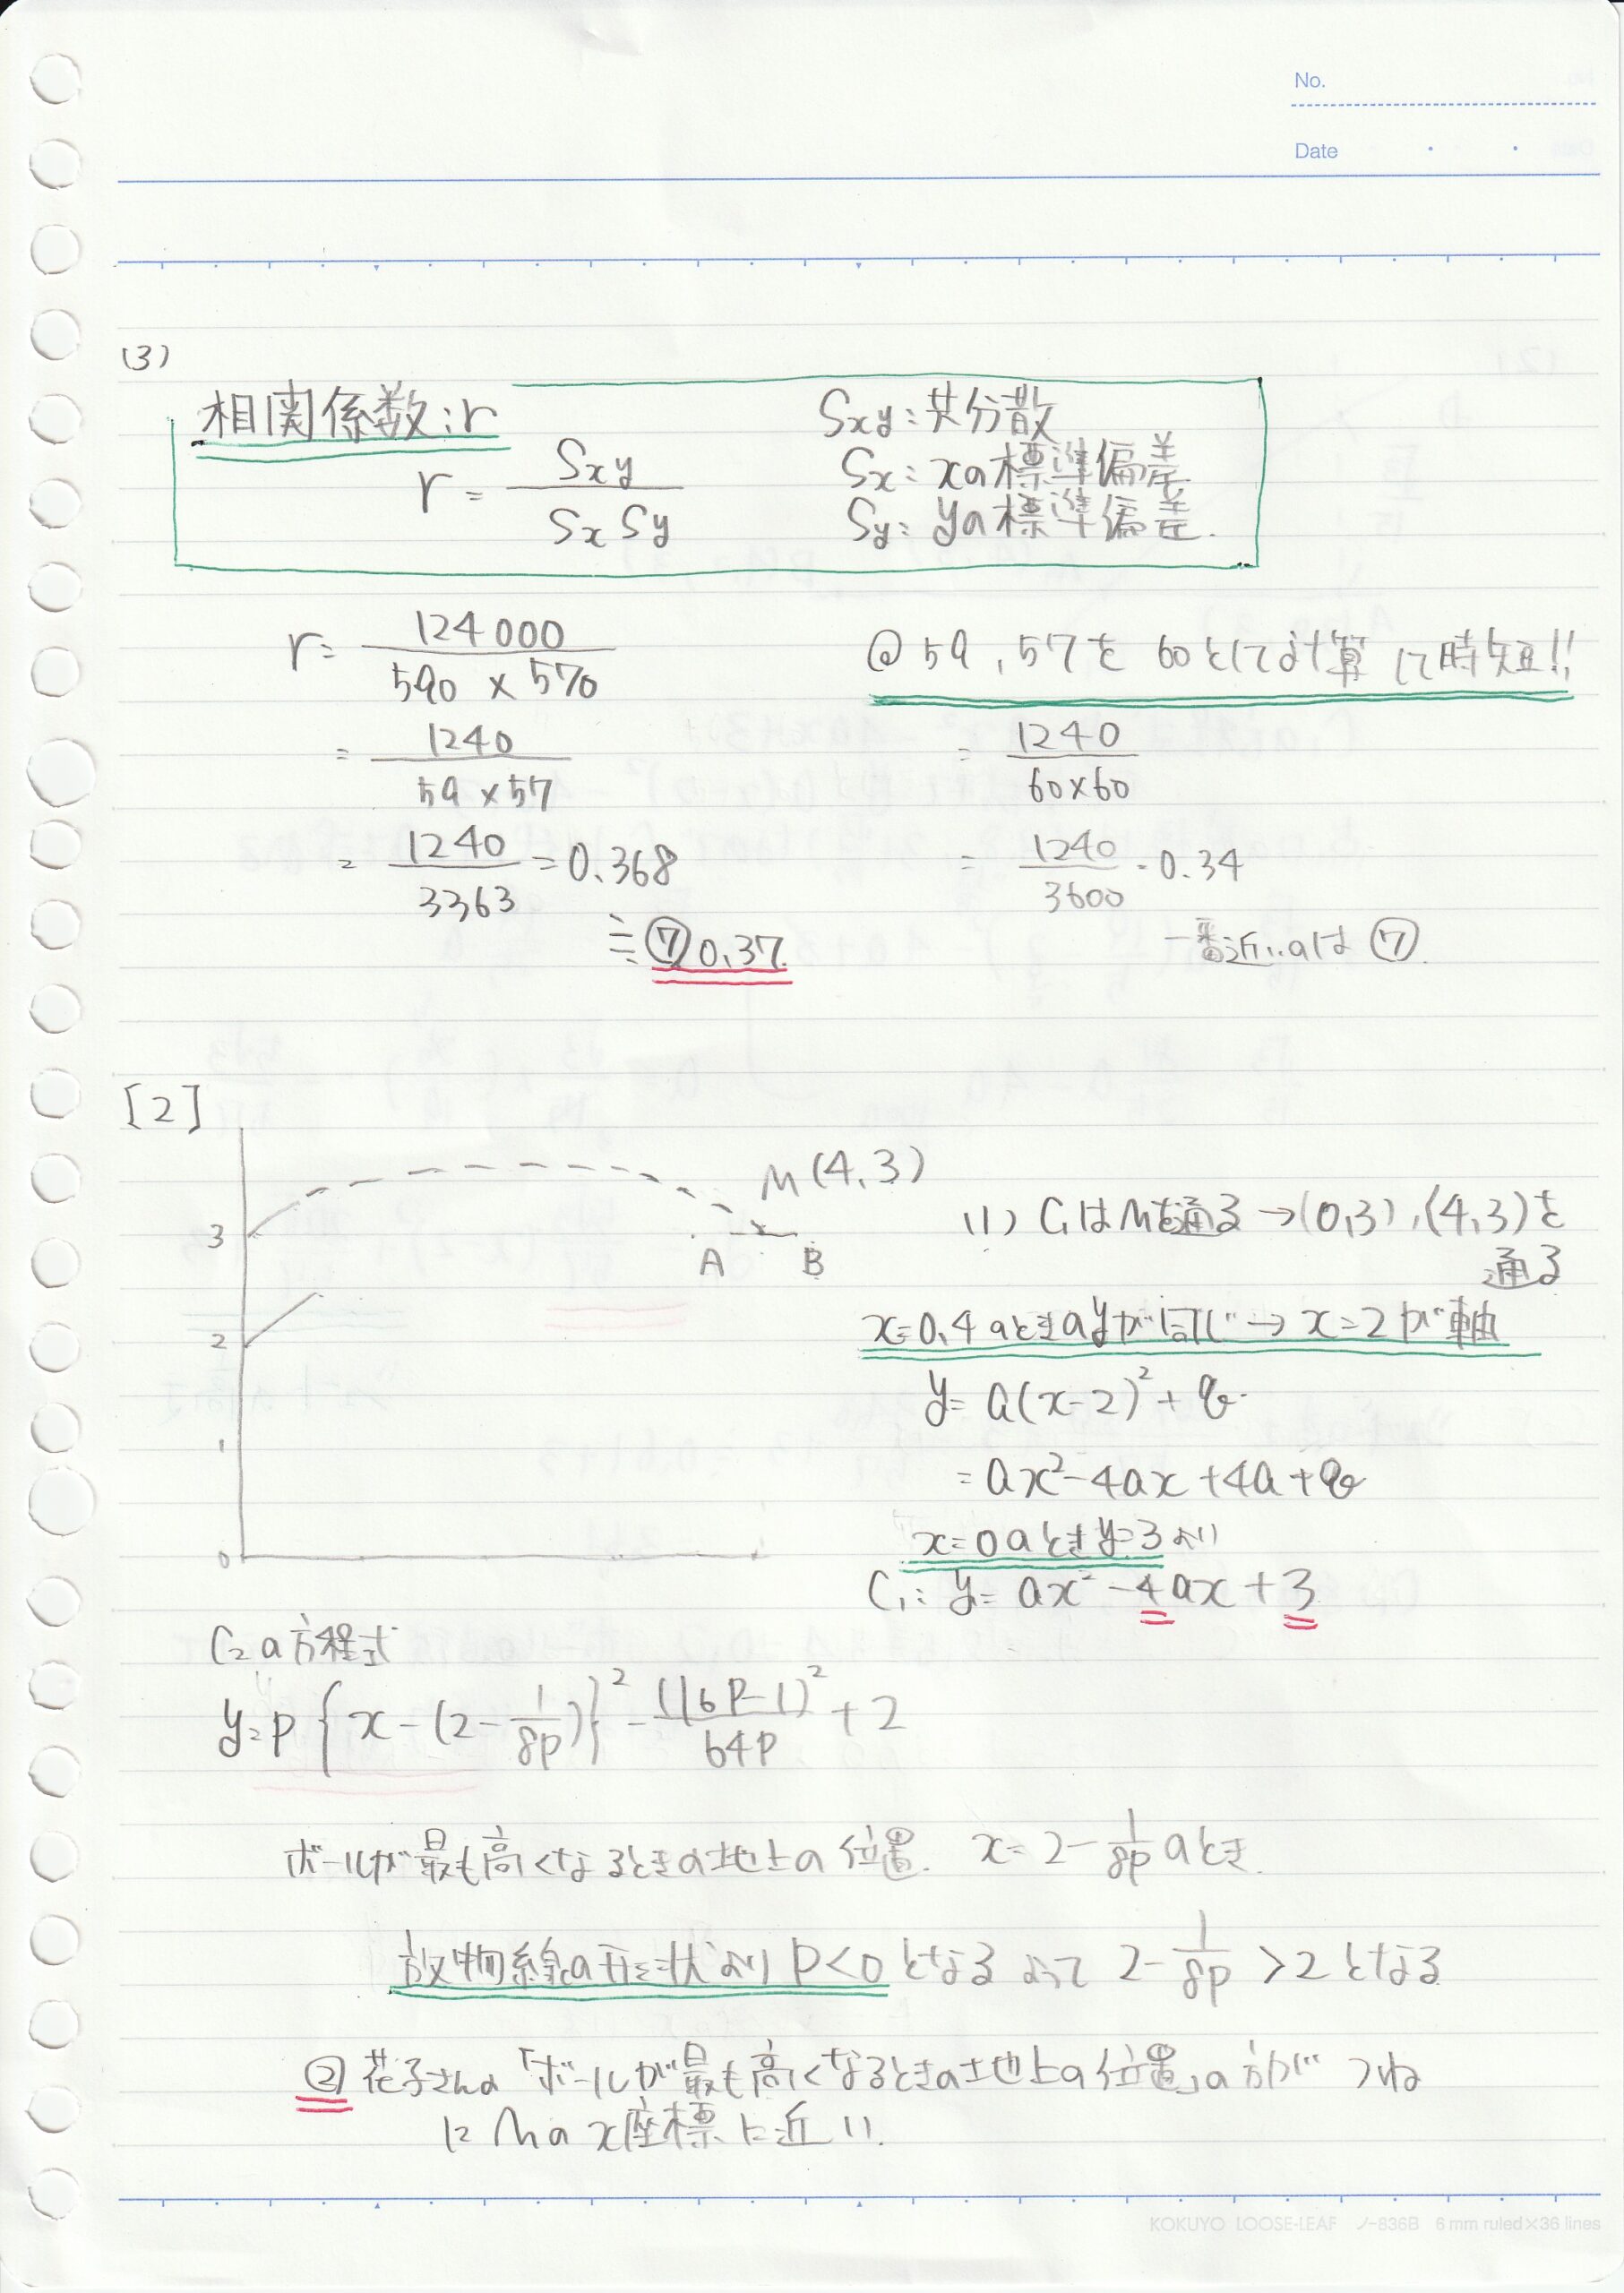 No.
Date
(3)
相関係数:r
Sxy:共分散
r = Sxy / SxSy
Sx:xの標準偏差
Sy:yの標準偏差.
r = 124000 / 590 × 570
@59,57を60として計算して時短!!
= 1240 / 59×57
= 1240 / 60×60
= 1240 / 3363 = 0.368
= 1240 / 3600 = 0.34
≒ ⑦ 0.37.
一番近いのは⑦.
[2]
M(4,3)
3
A
B
2
1
0
(1) C₁はMを通る→(0,3),(4,3)を
通る
x=0,4のときのyが同じ→x=2が軸
y=a(x-2)²+q
=ax²-4ax+4a+q
x=0のときy=3より
C₁: y=ax²-4ax+3
C₂の方程式
y=p{x-(2-1/8p)}²-(16p-1)²/64p+2
ボールが最も高くなるときの地上の位置. x=2-1/8pのとき.
放物線の形状よりp<0となる よって 2-1/8p>2となる
② 花子さんの「ボールが最も高くなるときの地上の位置」の方がつね
にMのx座標に近い.
KOKUYO LOOSE-LEAF ノ-836B 6mm ruled×36 lines